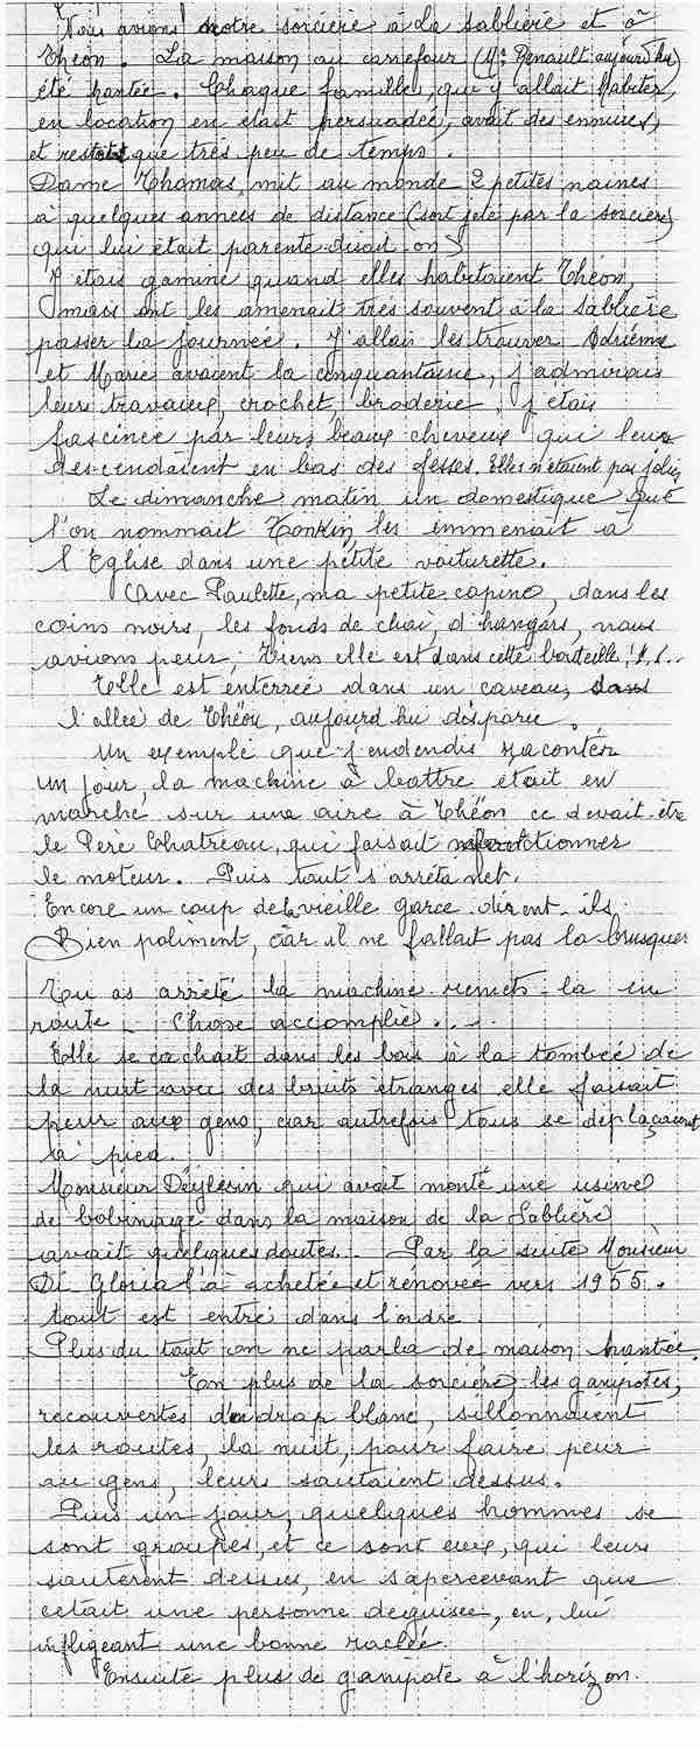 Nous avions notre sorcière à La Sablière et à
Théon. La maison au carrefour (Mr Renault aujourd'hu)
été hantée. Chaque familles, qui y allait habiter,
en location en était persuadée, avait des ennuies,
et restait que très peu de temps.
Dame Thomas, mit au monde 2 petites naines
à quelques années de distance (sort jeté par la sorcière)
qui lui était parente disait-on)
J'étais gamine quand elles habitaient Théon,
mais ont les amenait très souvent à la Sablière
passer la journée. J'allais les trouver Adrienne
et Marie avaient la cinquantaine, j'admirais
leurs travaux, crochet, broderie, j'étais
fascinée par leurs beaux cheveux qui leur
descendaient en bas des fesses. Elles n'étaient pas jolies
Le dimanche matin un domestique que
l'on nommait Tonkin, les emmenait à
l'Eglise dans une petite voiturette.
Avec Paulette, ma petite copine, dans les
coins noirs, les fonds de chai, d'hangars, nous
avions peur; Tiens elle est dans cette bouteille!!..
Elle est enterrée dans un caveau, dans
l'allée de Théon, aujourd'hu disparu.
Un exemple que j'endendis raconter
un jour, la machine à battre était en
marche sur une aire à Théon ce devait être
le Père Chatreau, qui faisait fonctionner
le moteur. Puis tout s'arrêta net.
Encore un coup de la vieille garce dirent-ils
Bien poliment, car il ne fallait pas la brusquer
Tu as arrêté la machine remets-la en
route - Chose accomplie...
Elle se cachait dans les bois à la tombée de
la nuit avec des bruits étranges elle faisait
peur aux gens, car autrefois tous se déplaçaient
à pied.
Monsieur qui avait monté une usine
de bobinage dans la maison de la Sablière
avait quelques doutes. Par la suite Monsieur
Di Gloria l'a achetée et rénovée vers 1955.
tout est entré dans l'ordre.
Plus du tout on ne parla de maison hantée.
En plus de la sorcière, les ganipotes,
recouvertes d'un drap blanc, sillonnaient
les routes, la nuit, pour faire peur
au gens, leurs sautaient dessus.
Puis un jour, quelques hommes se
sont groupés, et ce sont eux, qui leurs
sautèrent dessus, en s'apercevant que
cétait une personne déguisée, en, lui
infligeant une bonne raclée.
Ensuite plus de ganipote à l'horizon.